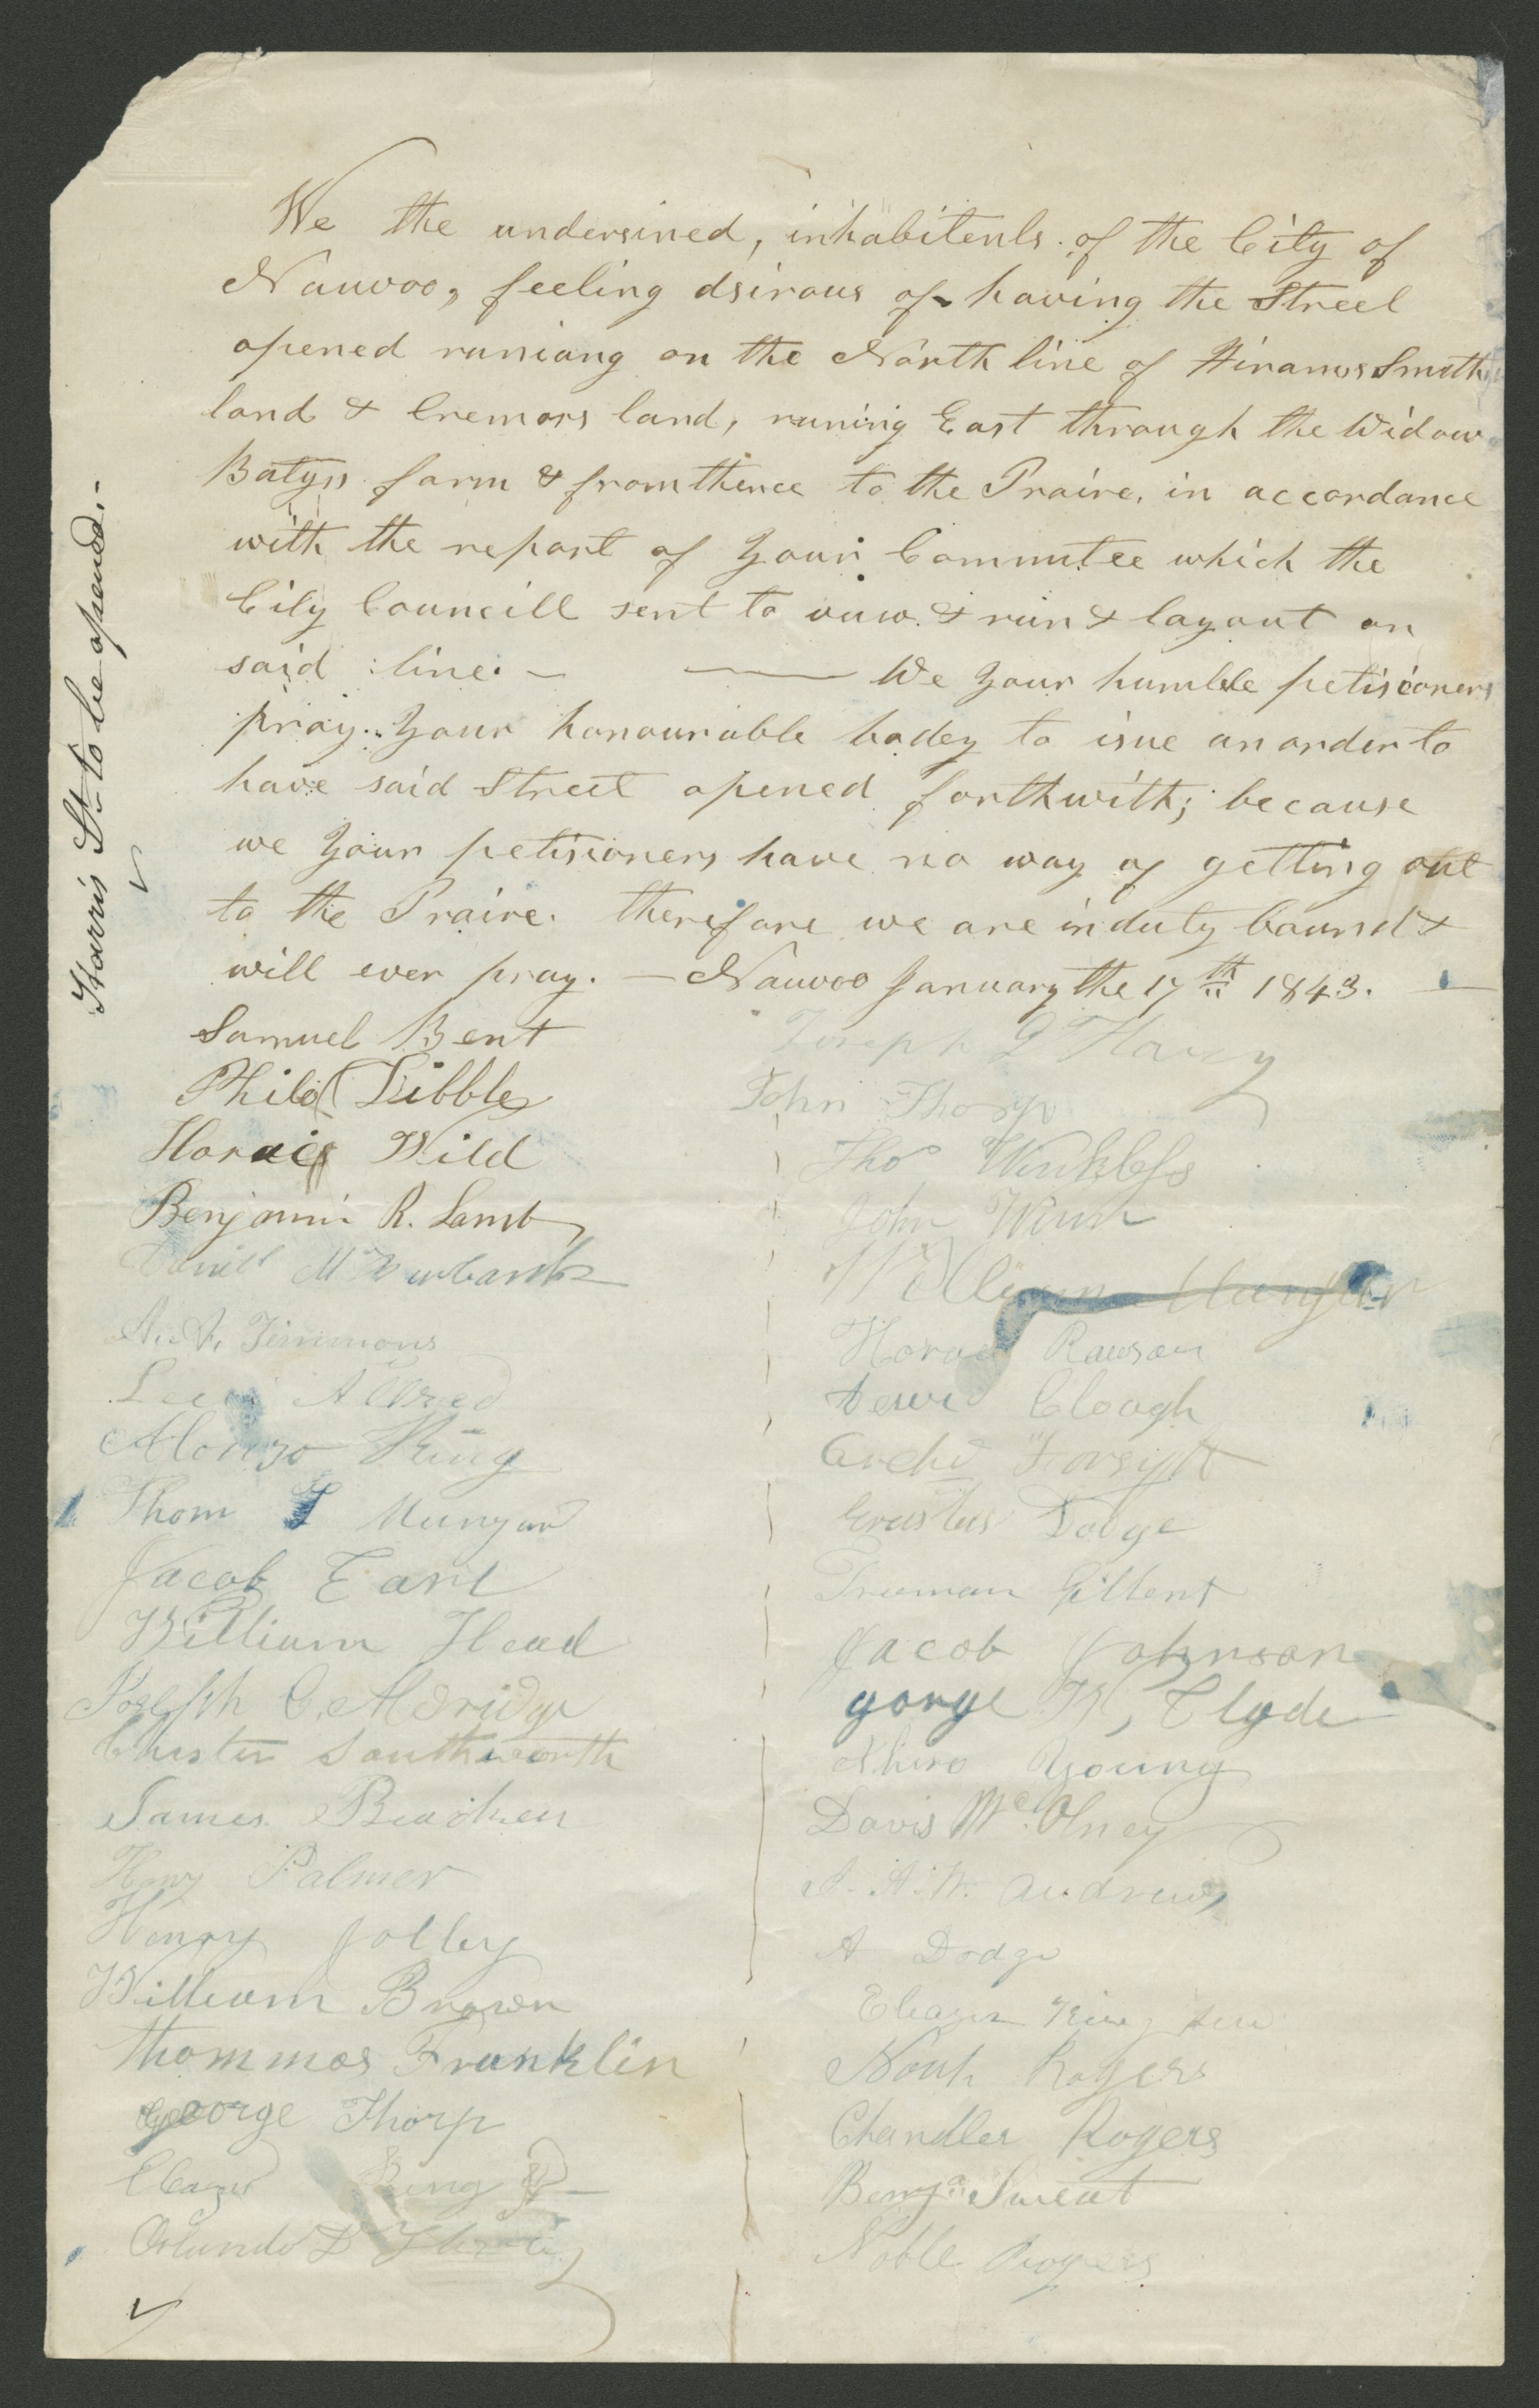 We the undersined, inhabitents of the City of
Nauvoo, feeling dsirous of having the Street
opened runiang on the North line of Hirams Smith
land & Cremors land, runing East through the Widow
farm & from thence to the Praire, in accordance
with the report of Your Commutee which the
City Councill sent to vuw & run & layout on
said line. — — We Your humble petisioners
pray Your honourable bodey to isue an order to
have said Street opened forthwith; because
we Your petisioners have no way of getting out
to the Praire. therefore we are in duty bound &
will ever pray. — Nauvoo January the 17th 1843. —
Samuel Bent
Philo Dibble
Horace Wild
Benjamin R. Lamb
Daniel M Burbank
Timmons
Allred
Alonzo King
Thom Mungar
Jacob Earl
William Head
Joseph C. Aldridge
Chester Southworth
James Bracken
Henry Palmer
Henry Jolley
William Brown
Thommas Franklin
george Thorp
Eleazer King Jr
Orlando D
Joseph G Hovey
John Thorp
Thos Winkless
John Winn
William
Horace Rawson
David Clough
Archd Forsyth
Erastus Dodge
Truman Gilbert
Jacob Johnson
gorge W, Clyde
Young
Davis McOlney
Andrews
A Dodge
Eleazer King sen
Noah Rogers
Chandler Rogers
Benja Sweat
Noble Rogers
Harris St. to be opened.-